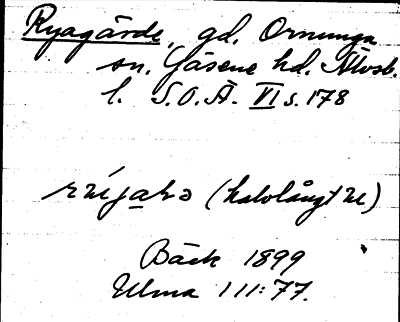 Ryagärde, gd. Ornunga
sn. Gäsene hd. Älvsb.
l. S.O.Ä. VI s. 178
(halvlångt u)
Bäck 1899
Ulma 111:77.